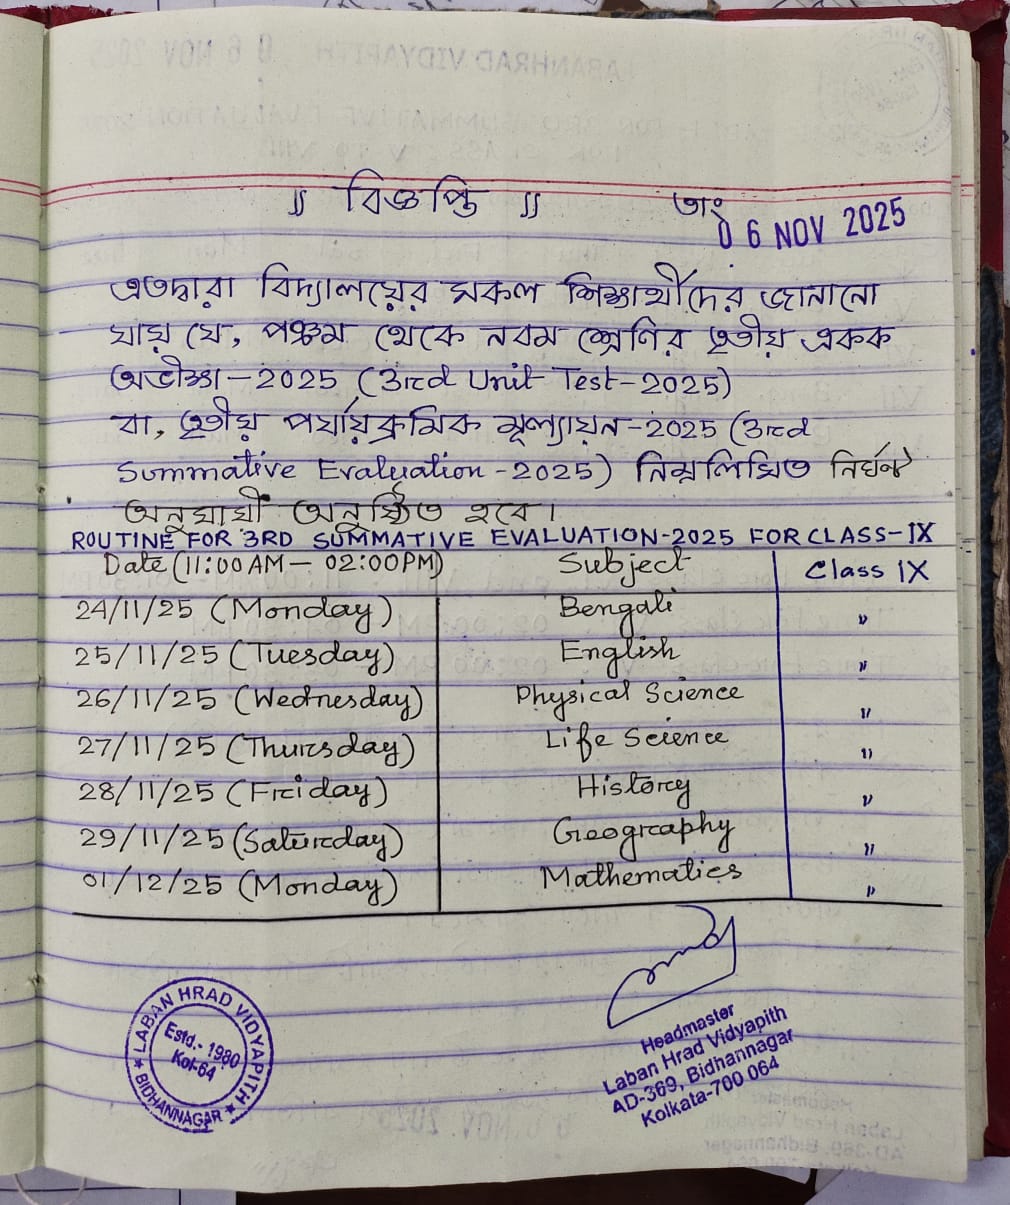 ॥ বিজ্ঞপ্তি ॥ তাং
06 NOV 2025
এতদ্বারা বিদ্যালয়ের সকল শিক্ষার্থীদের জানানো
যায় যে, পঞ্চম থেকে নবম শ্রেণির তৃতীয় একক
অভীক্ষা-2025 (3rd Unit Test-2025)
বা, তৃতীয় পর্যায়ক্রমিক মূল্যায়ন-2025 (3rd
Summative Evaluation-2025) নিম্নলিখিত নির্ঘন্ট
অনুযায়ী অনুষ্ঠিত হবে।
ROUTINE FOR 3RD SUMMATIVE EVALUATION-2025 FOR CLASS-IX
Date (11:00AM - 02:00PM) Subject Class IX
24/11/25 (Monday) Bengali "
25/11/25 (Tuesday) English "
26/11/25 (Wednesday) Physical Science "
27/11/25 (Thursday) Life Science "
28/11/25 (Friday) History "
29/11/25 (Saturday) Geography "
01/12/25 (Monday) Mathematics "
LABAN HRAD VIDYAPITH
Estd.- 1980
Kol-64
★ BIDHANNAGAR ★
Headmaster
Laban Hrad Vidyapith
AD-369, Bidhannagar
Kolkata-700 064